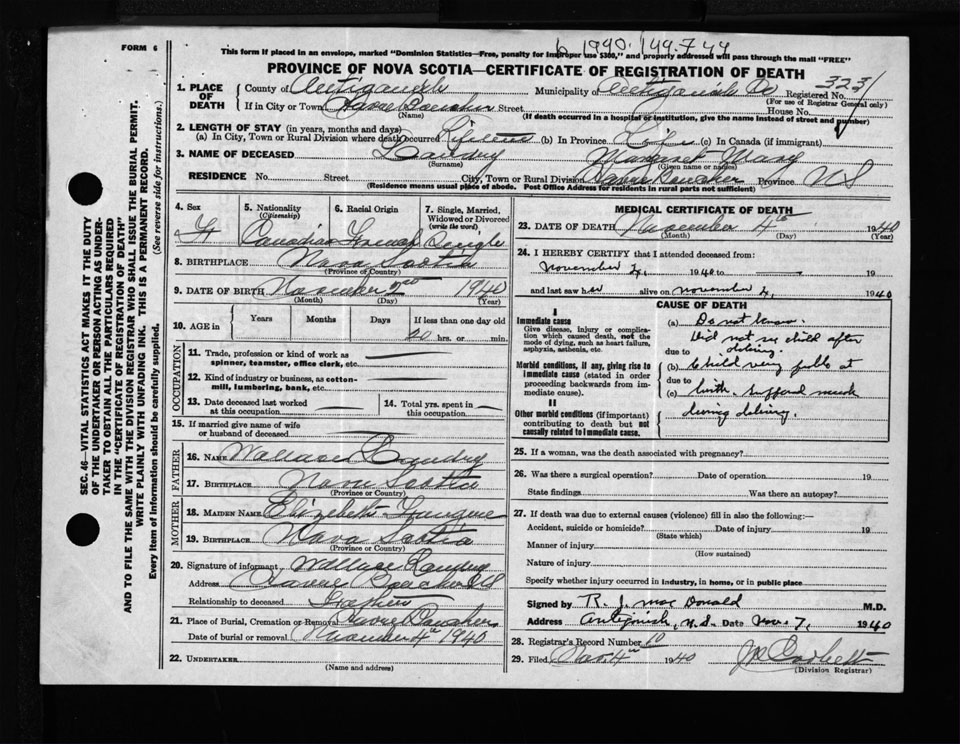 FORM 6
1940. 149.744
This form if placed in an envelope, marked "Dominion Statistics—Free, penalty for improper use $300," and properly addressed will pass through the mail "FREE"
PROVINCE OF NOVA SCOTIA—CERTIFICATE OF REGISTRATION OF DEATH
3231
1. PLACE OF DEATH County of Antigonish Municipality of Antigonish Co Registered No.
(For use of Registrar General only)
If in City or Town Havre Boucher Street House No.
(Name) (If death occurred in a hospital or institution, give the name instead of street and number)
2. LENGTH OF STAY (in years, months and days)
(a) In City, Town or Rural Division where death occurred Lifetime (b) In Province Life (c) In Canada (if immigrant)
3. NAME OF DECEASED Landry Margaret Mary
(Surname) (Given name or names)
RESIDENCE No. Street City, Town or Rural Division Havre Boucher Province NS
(Residence means usual place of abode. Post Office Address for residents in rural parts not sufficient)
SEC. 46—VITAL STATISTICS ACT MAKES IT THE DUTY
OF THE UNDERTAKER OR PERSON ACTING AS UNDER-
TAKER TO OBTAIN ALL THE PARTICULARS REQUIRED
IN THE "CERTIFICATE OF REGISTRATION OF DEATH"
AND TO FILE THE SAME WITH THE DIVISION REGISTRAR WHO SHALL ISSUE THE BURIAL PERMIT.
WRITE PLAINLY WITH UNFADING INK. THIS IS A PERMANENT RECORD.
Every item of information should be carefully supplied. (See reverse side for instructions.)
4. Sex 5. Nationality (Citizenship) 6. Racial Origin 7. Single, Married, Widowed or Divorced (write the word)
F Canadian French Single
8. BIRTHPLACE Nova Scotia
(Province or Country)
9. DATE OF BIRTH November 2nd 1940
(Month) (Day) (Year)
10. AGE in Years Months Days If less than one day old
20 hrs. or min.
OCCUPATION
11. Trade, profession or kind of work as spinner, teamster, office clerk, etc.
12. Kind of industry or business, as cotton-mill, lumbering, bank, etc.
13. Date deceased last worked at this occupation 14. Total yrs. spent in this occupation
15. If married give name of wife or husband of deceased
FATHER
16. NAME Wallace Landry
17. BIRTHPLACE Nova Scotia
(Province or Country)
MOTHER
18. MAIDEN NAME Elizabeth
19. BIRTHPLACE Nova Scotia
(Province or Country)
20. Signature of informant Wallace Landry
Address Havre Boucher NS
Relationship to deceased Father
21. Place of Burial, Cremation or Removal Havre Boucher
Date of burial or removal November 4th 1940
22. UNDERTAKER
(Name and address)
MEDICAL CERTIFICATE OF DEATH
23. DATE OF DEATH November 4th 1940
(Month) (Day) (Year)
24. I HEREBY CERTIFY that I attended deceased from:
November 2, 1940 to 19
and last saw her alive on November 2, 1940
CAUSE OF DEATH
I
Immediate cause
Give disease, injury or complication which caused death, not the mode of dying, such as heart failure, asphyxia, asthenia, etc.
Morbid conditions, if any, giving rise to immediate cause (stated in order proceeding backwards from immediate cause).
II
Other morbid conditions (if important) contributing to death but not causally related to immediate cause.
(a) Do not know.
Did not see child after
due to delivery.
(b) Child very feeble at
due to
(c) birth. suffered much
during delivery.
25. If a woman, was the death associated with pregnancy?
26. Was there a surgical operation? Date of operation 19
State findings Was there an autopsy?
27. If death was due to external causes (violence) fill in also the following:—
Accident, suicide or homicide? Date of injury 19
(State which)
Manner of injury
(How sustained)
Nature of injury
Specify whether injury occurred in industry, in home, or in public place
Signed by R. J. MacDonald M.D.
Address Antigonish, N.S. Date Nov. 7, 1940
28. Registrar's Record Number 10
29. Filed Nov. 4th 1940 J Corbett
(Division Registrar)